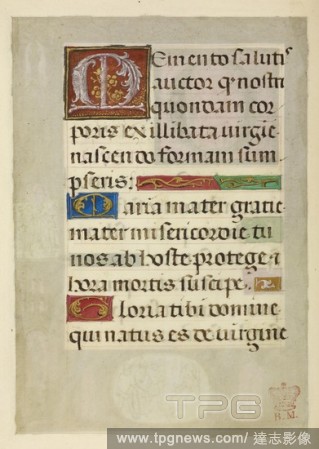 Memento salutis
auctor q nostri
quondam cor
poris ex illibata virgie
nascendo formam sum
pseris:
Maria mater gratie
mater misericordie tu
nos ab hoste protege ⁊
hora mortis suscipe. æ
Gloria tibi domine
qui natus es de virgine
TPG
B.M.
www.tpgnews.com/ 達志影像